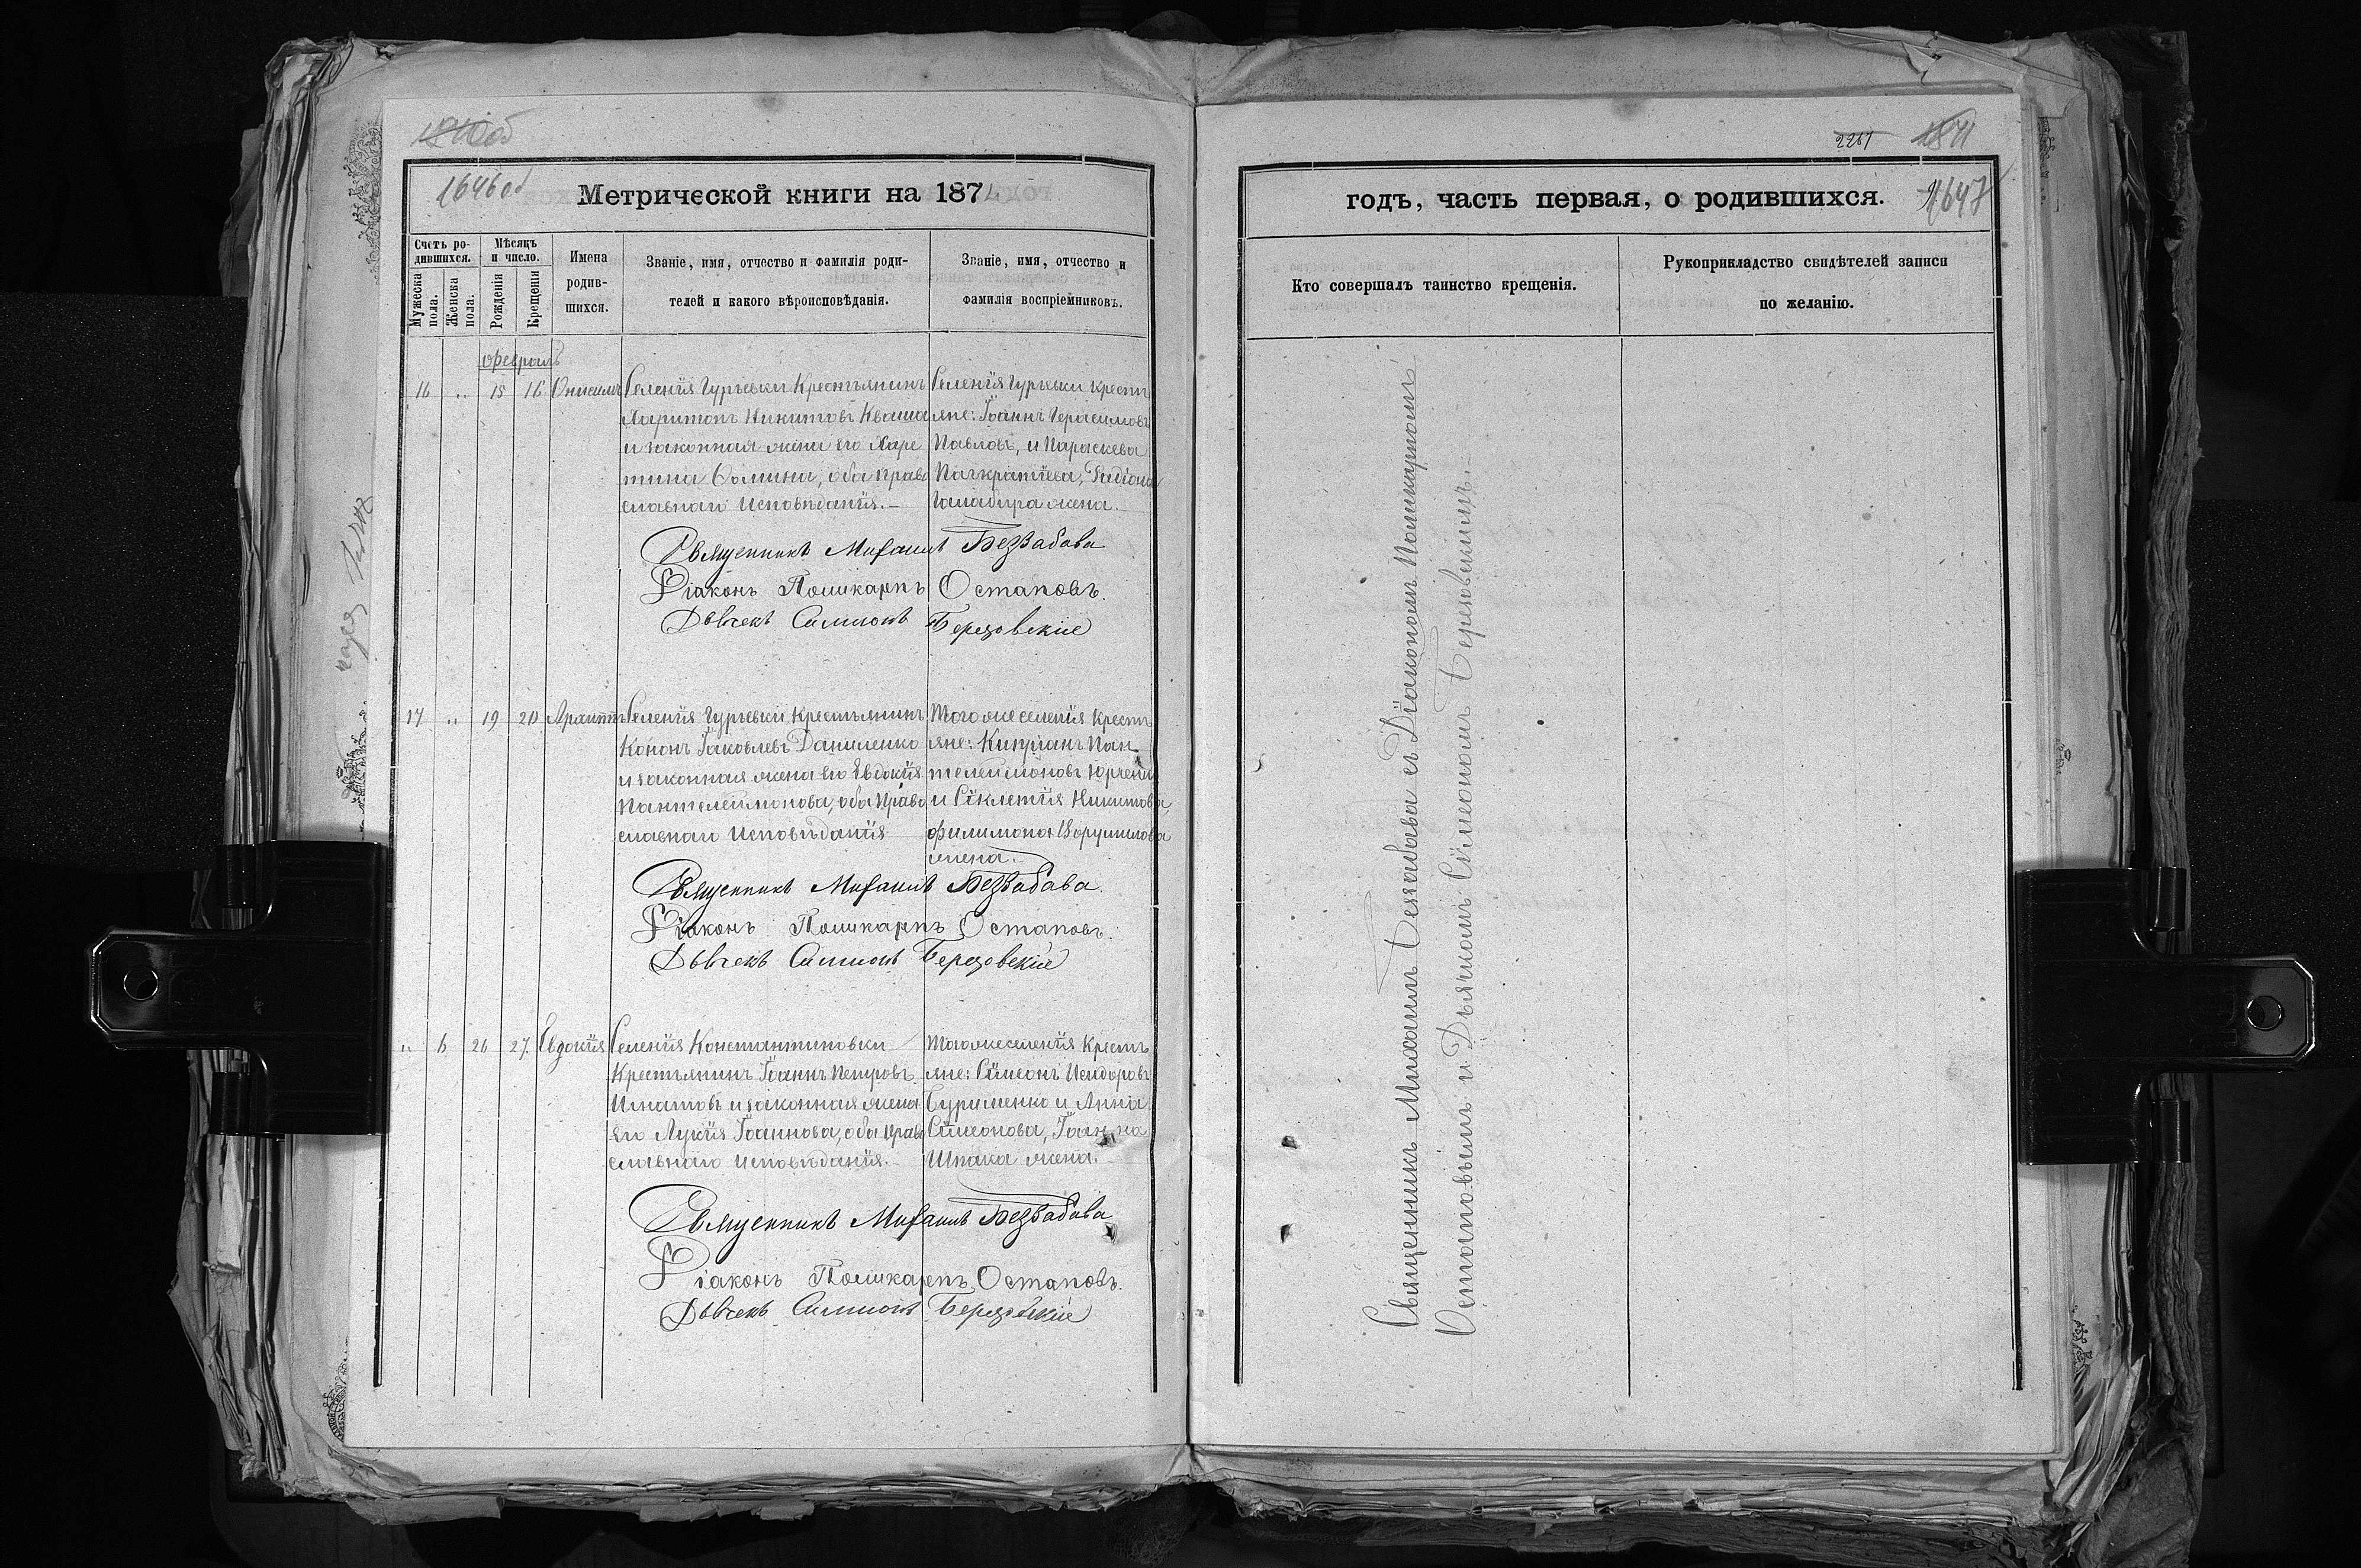 1646 об
Метрической книги на 187
Счетъ ро-
дившихся.
Мужеска
пола.
Женска
пола.
Мѣсяцъ
и число.
Рожденія
Крещенія
Имена
родив-
шихся.
Званіе, имя, отчество и фамилія роди-
телей и какого вѣроисповѣданія.
Званіе, имя, отчество и
фамилія воспріемниковъ.
Февраль
16 „ 15 16 Онисимъ
Селенія Гурьевки Крестьянинъ
Харитонъ Никитовъ Кваша
и законная жена его Харе
тина Фомина, оба право
славнаго исповѣданія.–
Селенія Гурьевки крестъ
яне: Іоаннъ Герасимовъ
Павловъ, и Параскева
Панкратіева, Радіона
жена.
Священникъ Михаилъ Беззабава
Діаконъ Поликарпъ Остаповъ.
Дьячекъ Симеонъ Березовскій
17 „ 19 20 Архиппъ
Селенія Гурьевки Крестьянинъ
Кононъ Іаковлевъ Даниленко
и законная жена его Евдокія
Пантелеимонова, оба право
славнаго исповѣданія
Того же селенія крестъ
яне: Кипріанъ Пан
телеимоновъ Юрченко
и Сіклетія Никитова,
Филимона Ворушилова
жена.
Священникъ Михаилъ Беззабава.
Діаконъ Поликарпъ Остаповъ.
Дьячекъ Симеонъ Березовскій
„ 6 26 27. Евдокія
Селенія Константиновки
Крестьянинъ Іоаннъ Петровъ
Игнатовъ и законная жена
его Лукія Іоаннова, оба право
славнаго исповѣданія.–
Того же селенія Крестъ
яне: Сімеонъ Исидоровъ
Буріменко и Анна
Сімеонова, Іоанна
Шпака жена.
Священникъ Михаилъ Беззабава
Діаконъ Поликарпъ Остаповъ.
Дьячекъ Симеонъ Березовскій
2261 1841
годъ, часть первая, о родившихся. 1647
Кто совершалъ таинство крещенія.
Рукоприкладство свидѣтелей записи
по желанію.
Священникъ Михаилъ Беззабава съ Діакономъ Поликарпомъ
Остаповымъ и Дьячкомъ Сімеономъ Березовскимъ.